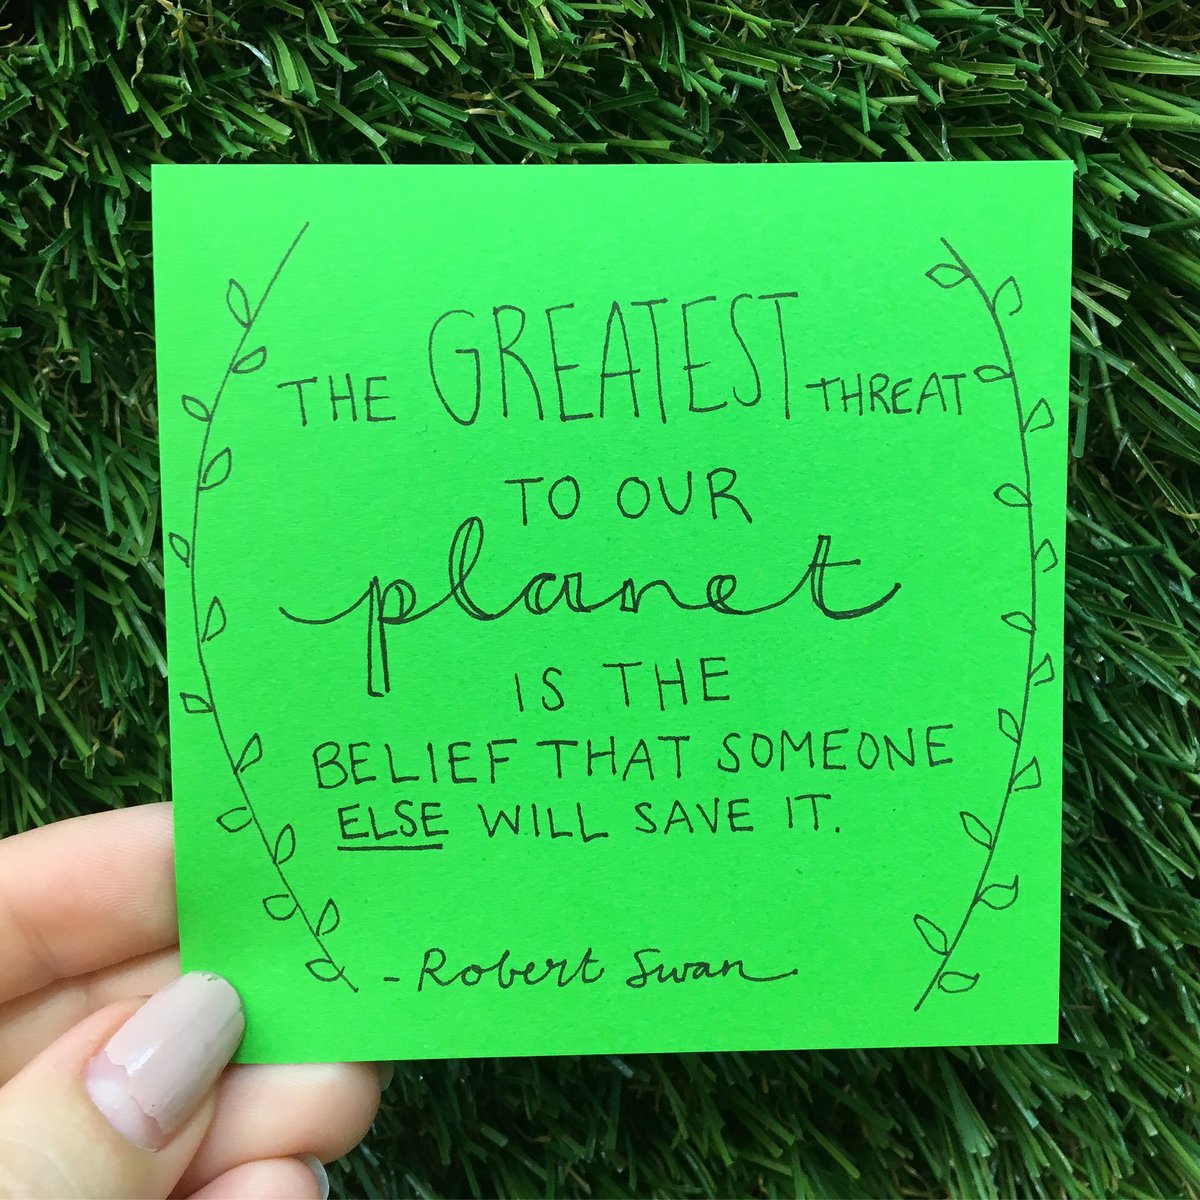 THE GREATEST THREAT
TO OUR
planet
IS THE
BELIEF THAT SOMEONE
ELSE WILL SAVE IT.
- Robert Swan